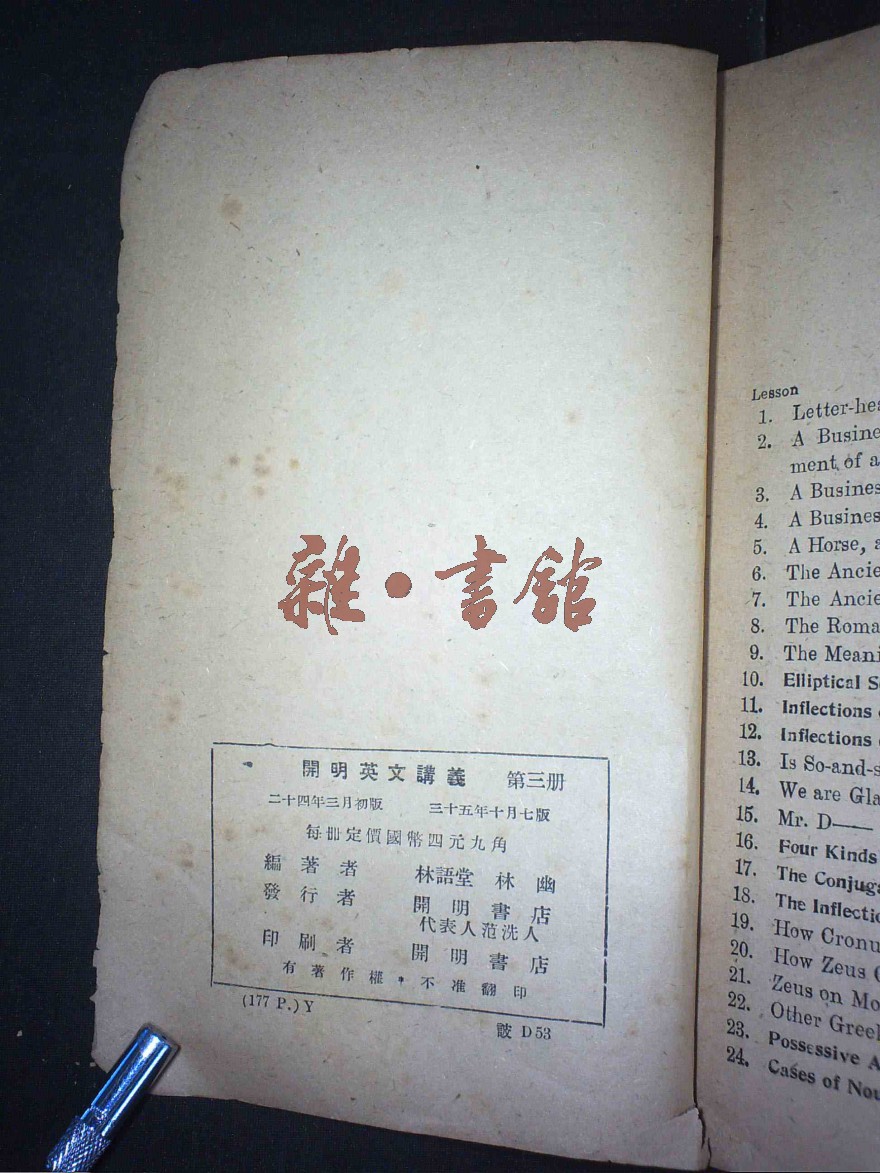 雜•書館
開明英文講義 第三册
二十四年三月初版 三十五年十月七版
每册定價國幣四元九角
編著者 林語堂 林幽
發行者 開明書店
代表人范洗人
印刷者 開明書店
有著作權•不准翻印
(177 P.) Y
D53
Lesson
1. Letter-hea
2. A Busine
ment of a
3. A Busines
4. A Business
5. A Horse, a
6. The Ancie
7. The Ancie
8. The Roma
9. The Meani
10. Elliptical S
11. Inflections
12. Inflections
13. Is So-and-s
14. We are Gla
15. Mr. D——
16. Four Kinds
17. The Conjuga
18. The Inflectio
19. How Cronu
20. How Zeus
21. Zeus on Mo
22. Other Greek
23. Possessive A
24. Cases of Nou